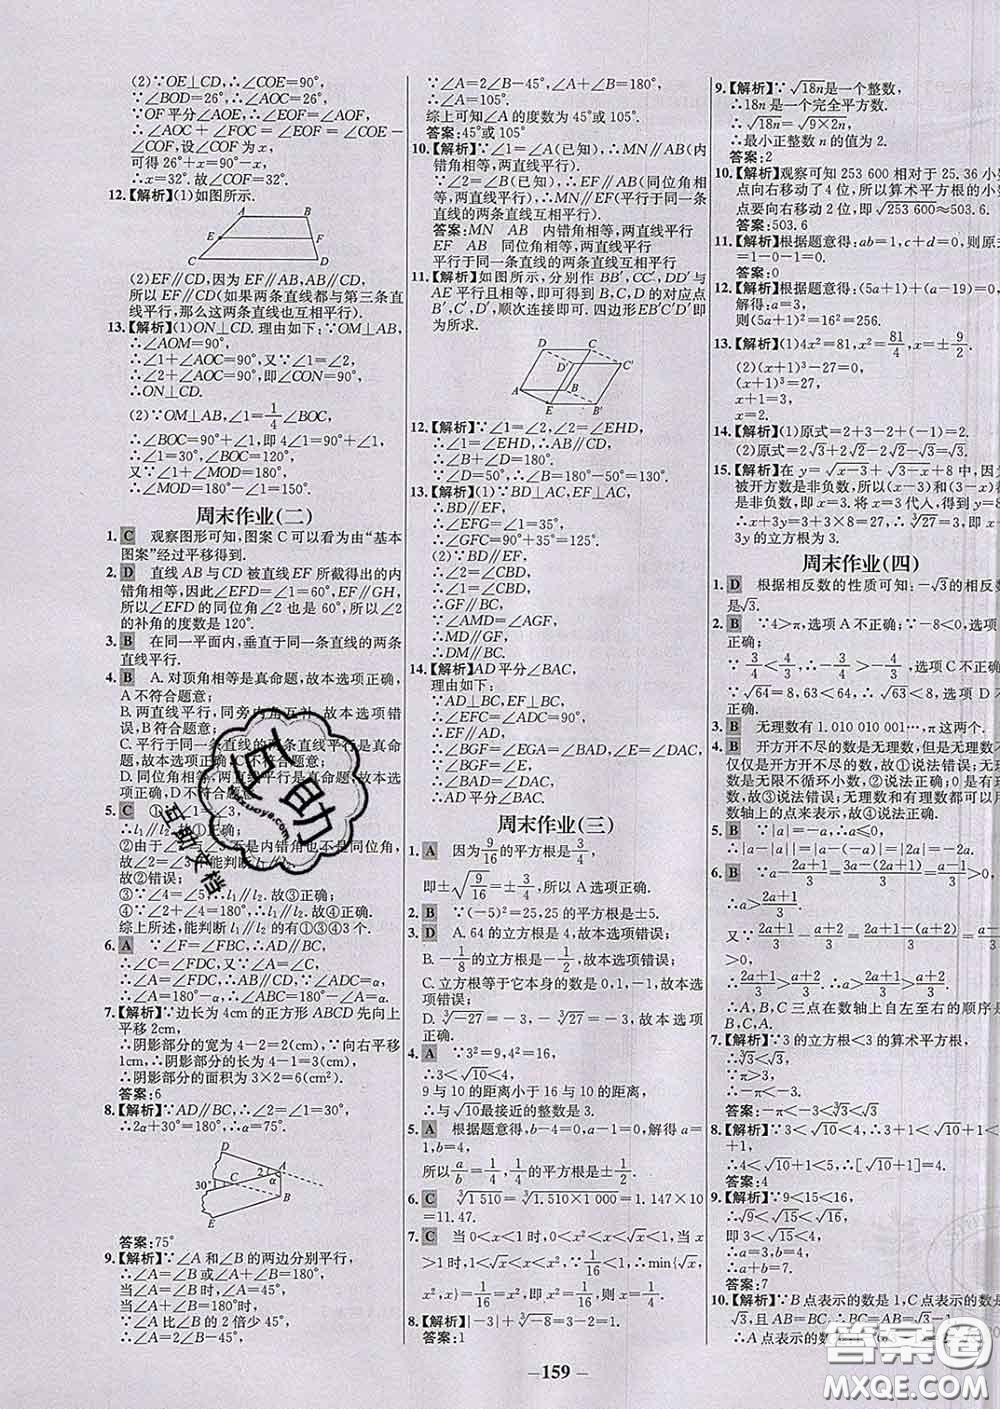 (2)∵OE⊥CD,∴∠COE=90°.
∵∠BOD=26°,∴∠AOC=26°.
∵OF平分∠AOE,∴∠EOF=∠AOF.
∴∠AOC+∠FOC=∠EOF=∠COE-
∠COF,设∠COF为x.
可得26°+x=90°-x,
∴x=32°.故∠COF=32°.
12.【解析】(1)如图所示.
A B
E F
C D
(2)EF∥CD,因为EF∥AB,AB∥CD,
所以EF∥CD(如果两条直线都与第三条直
线平行,那么这两条直线也互相平行).
13.【解析】(1)ON⊥CD.理由如下:∵OM⊥AB,
∴∠AOM=90°,
∴∠1+∠AOC=90°,又∵∠1=∠2,
∴∠2+∠AOC=90°,即∠CON=90°,
∴ON⊥CD.
(2)∵OM⊥AB,∠1=1/4∠BOC,
∴∠BOC=90°+∠1,即4∠1=90°+∠1,
∴∠1=30°,∠BOC=120°,
又∵∠1+∠MOD=180°,
∴∠MOD=180°-∠1=150°.
周末作业(二)
1. C 观察图形可知,图案C可以看为由“基本
图案”经过平移得到.
2. D 直线AB与CD被直线EF所截得出的内
错角相等,因此∠EFD=∠1=60°,EF∥GH,
所以∠EFD的同位角∠2也是60°,所以∠2
的补角的度数是120°.
3. B 在同一平面内,垂直于同一条直线的两条
直线平行.
4. B A.对顶角相等是真命题,故本选项正确,
A不符合题意;
B.两直线平行,同旁内角互补,故本选项错
误,B符合题意;
C.平行于同一条直线的两条直线平行是真命
题,故本选项正确,C不符合题意;
D.同位角相等,两直线平行是真命题,故本选项正确,
D不符合题意.
5. C ①∵∠1=∠3,
∴l₁∥l₂,故①正确;
②由于∠2与∠3不是内错角也不是同位角,
故∠2=∠3不能判断l₁∥l₂,
故②错误;
③∵∠4=∠5,∴l₁∥l₂.故③正确;
④∵∠2+∠4=180°,∴l₁∥l₂.故④正确.
综上所述,能判断l₁∥l₂的有①③④3个.
6. A ∵∠F=∠FBC,∴AD∥BC,
∴∠C=∠FDC,又∵∠A=∠C,
∴∠A=∠FDC,∴AB∥DC,∵∠ADC=α,
∴∠A=180°-α,∴∠C=∠A=180°-α.
7.【解析】∵边长为4cm的正方形ABCD先向上
平移2cm,
∴阴影部分的宽为4-2=2(cm),∵向右平移
1cm,∴阴影部分的长为4-1=3(cm),
∴阴影部分的面积为3×2=6(cm²).
答案:6
8.【解析】∵AD∥BC,∴∠2=∠1=α,
∴2α+30°=180°,∴∠α=75°.
D
A
30° C 1 2 α
B
E
答案:75°
9.【解析】∵∠A和∠B的两边分别平行,
∴∠A=∠B或∠A+∠B=180°,
当∠A+∠B=180°时,
∵∠A比∠B的2倍少45°,
∴∠A=2∠B-45°,
∵∠A=2∠B-45°,∠A+∠B=180°,
∴∠A=105°.
综上可知∠A的度数为45°或105°.
答案:45°或105°
10.【解析】∵∠1=∠A(已知),∴MN∥AB(内
错角相等,两直线平行).
∵∠2=∠B(已知),∴EF∥AB(同位角相
等,两直线平行),∴MN∥EF(平行于同一条
直线的两条直线互相平行).
答案:MN AB 内错角相等,两直线平行
EF AB 同位角相等,两直线平行
平行于同一条直线的两条直线互相平行
11.【解析】如图所示,分别作BB′,CC′,DD′与
AE平行且相等,即可得到B,C,D的对应点
B′,C′,D′,顺次连接即可.四边形EB′C′D′即
为所求.
D C
D′ C′
A B
E B′
12.【解析】∵∠1=∠2,∠2=∠EHD,
∴∠1=∠EHD,∴AB∥CD,
∴∠B+∠D=180°,
∵∠D=50°,∴∠B=180°-50°=130°.
13.【解析】(1)∵BD⊥AC,EF⊥AC,
∴BD∥EF,
∴∠EFG=∠1=35°,
∴∠GFC=90°+35°=125°.
(2)∵BD∥EF,
∴∠2=∠CBD,
∴∠1=∠CBD,
∴GF∥BC,
∵∠AMD=∠AGF,
∴MD∥GF,
∴DM∥BC.
14.【解析】AD平分∠BAC,
理由如下:
∵AD⊥BC,EF⊥BC,
∴∠EFC=∠ADC=90°,
∴EF∥AD,
∴∠BGF=∠EGA=∠BAD,∠E=∠DAC,
∵∠BGF=∠E,
∴∠BAD=∠DAC,
∴AD平分∠BAC.
周末作业(三)
1. A 因为9/16的平方根是±3/4,
即±√(9/16)=±3/4,所以A选项正确.
2. B ∵(-5)²=25,25的平方根是±5.
3. D A.64的立方根是4,故本选项错误;
B.-1/8的立方根是-1/2,故本选项错误;
C.立方根等于它本身的数是0,1,-1,故本选
项错误;
D.∛-27=-3,-∛27=-3,故本选项
正确.
4. A ∵3²=9,4²=16,
∴3<√10<4,
9与10的距离小于16与10的距离,
∴与√10最接近的整数是3.
5. A 根据题意得,b-4=0,a-1=0,解得a=
1,b=4,
所以a/b=1/4,1/4的平方根是±1/2.
6. C ∛1 510=∛1.510×1 000=1.147×10
=11.47.
7. C 当0<x<1时,0<x²<x<√x<1,当x
>1时,1<√x<x<x²,∴min{√x,
x²,x}=1/16=x²=1/16,所以x=1/4.
8.【解析】|-3|+∛-8=3-2=1.
答案:1
9.【解析】∵√18n是一个整数,
∴18n是一个完全平方数.
∴√18n=√9×2n,
∴最小正整数n的值为2.
答案:2
10.【解析】观察可知253 600相对于25.36小数
点向右移动了4位,所以算术平方根的小数
点要向右移动2位,即√253 600≈503.6.
答案:503.6
11.【解析】根据题意得:ab=1,c+d=0,则原式
=1-0-1=0.
答案:0
12.【解析】根据题意得:(5a+1)+(a-19)=0,
解得:a=3,
则(5a+1)²=16²=256.
13.【解析】(1)4x²=81,x²=81/4,x=±9/2.
(2)(x+1)³-27=0,
(x+1)³=27,
x+1=3,
x=2.
14.【解析】(1)原式=2+3-2+(-1)=2.
(2)原式=2√3+2√2-2√2-√3=√3.
15.【解析】在y=√x-3+√3-x+8中,因为
被开方数是非负数,所以(x-3)和(3-x)都
是非负数,所以x=3.将x=3代入,得到y=8
∴x+3y=3+3×8=27,∴∛27=3,即x+3y
的立方根为3.
周末作业(四)
1. D 根据相反数的性质可知:-√3的相反数
是√3.
2. B ∵4>π,选项A不正确;∵-8<0,选项B正确;
∵√64=8,∴√63<8,选项D不
3. B 无理数有1.010 010 001…,π这两个.
4. B 开方开不尽的数是无理数,但是无理数不
仅仅是开方开不尽的数,故①说法错误;无理
数是无限不循环小数,②说法正确;0是有理
数,故③说法错误.无理数和有理数都可以用
数轴上的点来表示,故④说法正确.
5. B ∵|a|=-a,∴a≤0,
∴|a-|a||=|a-(-a)|=|2a|=-2a.
6. B ∵a-(2a+1)/3=(3a-(2a+1))/3=(a-1)/3>0,
∴a>(2a+1)/3.
又∵(2a+1)/3-(a+2)/3=(2a+1-(a+2))/3=(a-1)/3
>0,∴(2a+1)/3>(a+2)/3.
∴A,B,C三点在数轴上自左至右的顺序是
B,C,A.
7.【解析】∵3的立方根<3的算术平方根,
∴∛3<√3.
∵π>3,
∴-π<-3.
答案:-π<-3<∛3<√3
8.【解析】∵3<√10<4,∴3+1<√10+1<4
+1,
∴4<√10+1<5,∴[√10+1]=4.
答案:4
9.【解析】∵9<15<16,
∴√9<√15<√16,
即3<√15<4,
∴a=3,b=4,
∴a+b=7.
答案:7
10.【解析】∵B点表示的数是1,C点表示的数是
√3,且AB=BC,
∴A点表示的数是
- 159 -
互助
uxuoya.com
互助文档
答案圈
MXQE.COM